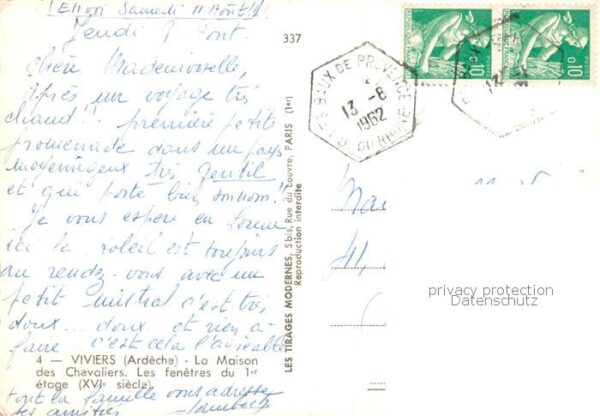 Samedi 11 Août
Jeudi 9 Août.
Chère Mademoiselle,
Après un voyage très
chaud ! première petite
promenade dans un pays
moyenageux très gentil
et qui porte bien son nom !!
Je vous espère en forme
ici le soleil est toujours
au rendez-vous avec un
petit mistral c'est très
doux... doux. et rien à
faire. c'est cela l'agréable
4 — VIVIERS (Ardèche) - La Maison
des Chevaliers. Les fenêtres du 1er
étage (XVIe siècle).
tout la famille vous adresse
ses amitiés
337
LES TIRAGES MODERNES, 5bis, Rue du Louvre, PARIS (1er)
Reproduction interdite
LES BAUX DE PROVENCE
13 -8
1962
0,10
0,10
41,
privacy protection
Datenschutz